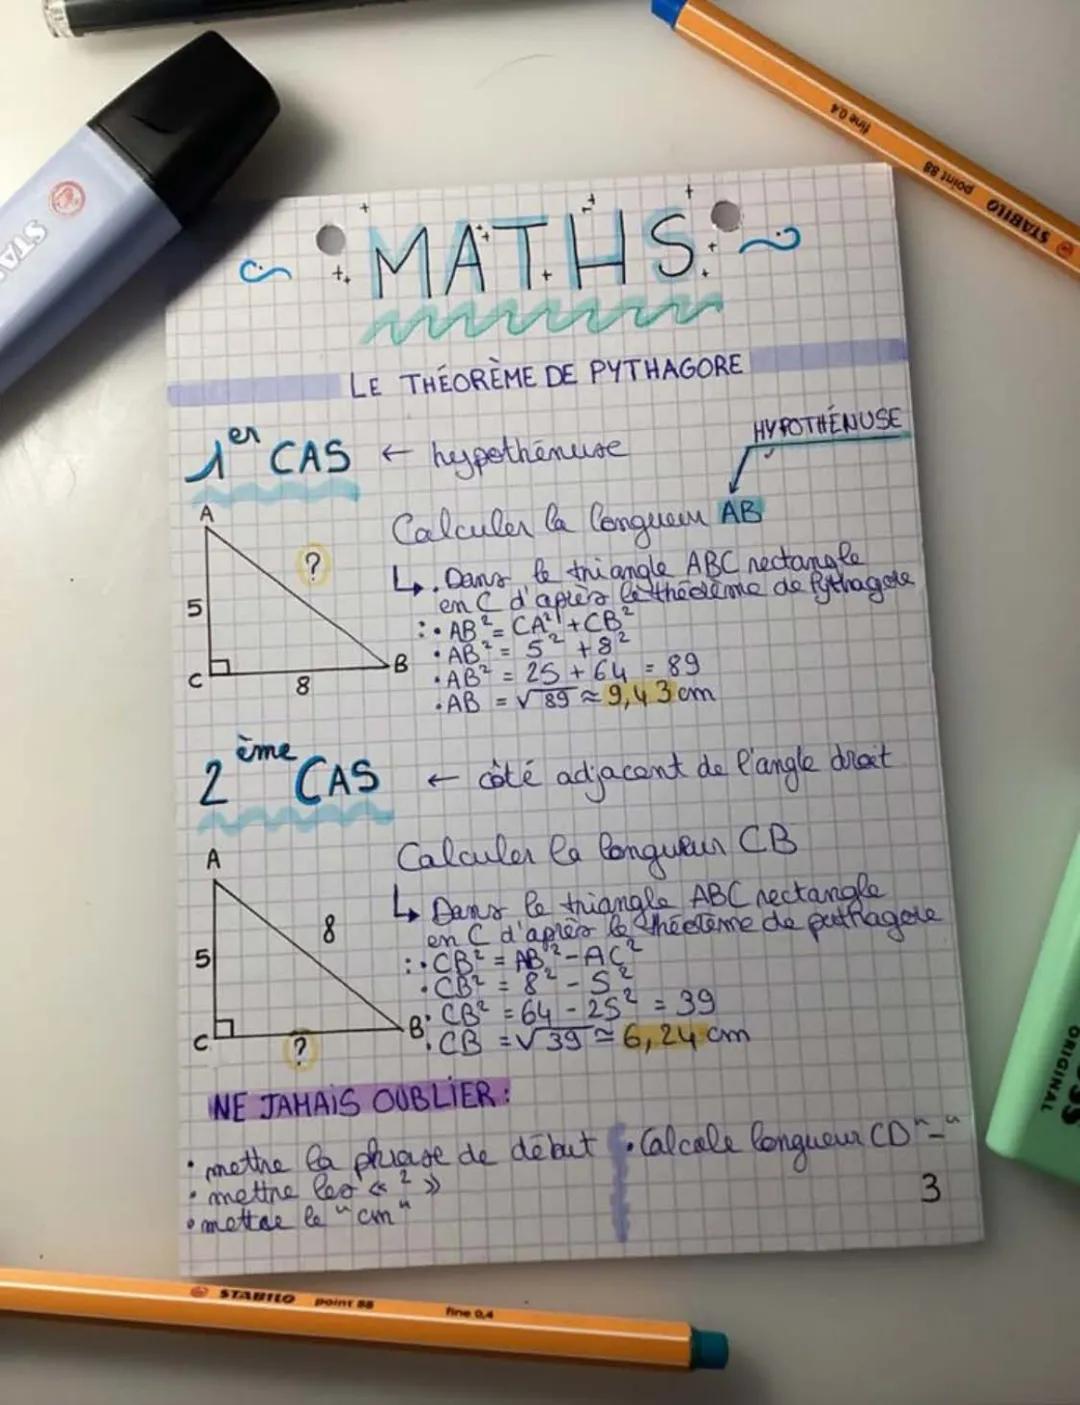 fine 0.4
point 88
STABILO
STA
MATHS
LE THÉORÈME DE PYTHAGORE
HYPOTHÉNUSE
1er CAS ← hypothénuse
A
?
5
C
8
B
Calculer la longueur AB
↳ . Dans le triangle ABC rectangle
en C d'après le théorème de Pythagore
: • AB² = CA² + CB²
• AB² = 5² + 8²
• AB² = 25 + 64 = 89
• AB = √89 ≈ 9,43 cm
2ème CAS ← côté adjacent de l'angle droit
A
8
5
C
?
B
Calculer la longueur CB
↳ Dans le triangle ABC rectangle
en C d'après le théorème de pathagore
: • CB² = AB² - AC²
• CB² = 8² - 5²
• CB² = 64 - 25² = 39
• CB = √39 ≈ 6,24 cm
NE JAMAIS OUBLIER :
• mettre la phrase de début
• mettre les « ² »
• mettre le "cm"
• Calcale longueur CD "-"
3
ORIGINAL
STABILO point 88 fine 0,4